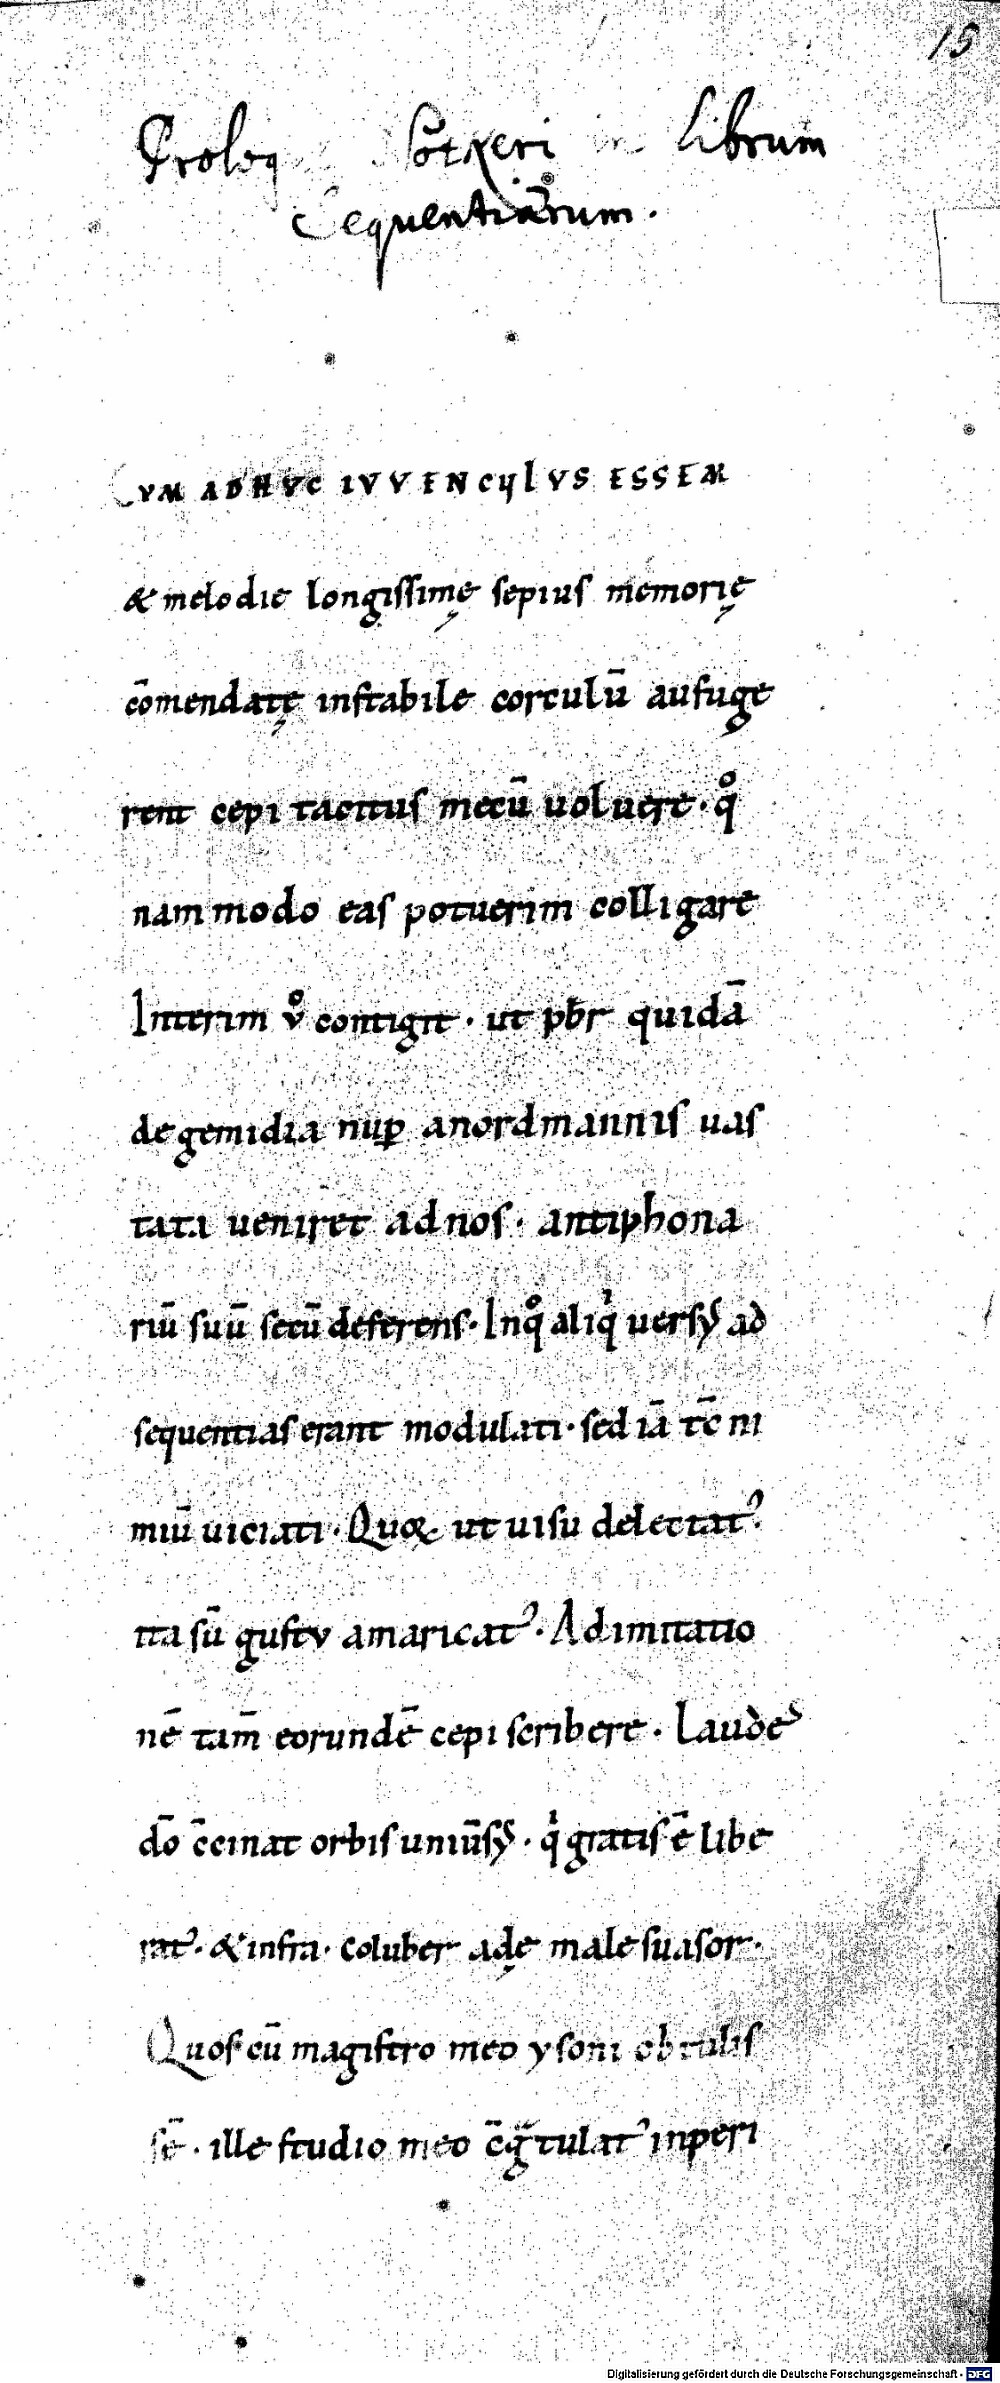 15
Prolog Notkeri in Librum
Sequentiarum.
CVM ADHVC IVVENCVLVS ESSEM
& melodie longissimę sepius memorię
cōmendatę instabile corculū aufuge
rent cepi tacitus mecū uoluere · qͦ
nam modo eas potuerim colligare
Interim vͦ contigit · ut pƀr quidā
de gemidia nuꝑ anordmannis uas
tata ueniret ad nos · antiphona
riū suū secū deferens · Inqͦ aliqͥ uersꝰ ad
sequentias erant modulati · sed iā tc̄ ni
miū uiciati · Quoꝝ ut uisu delectatᷣ
ita sū gustv amaricatᷣ · Ad imitatio
nē tam̄ eorundē cepi scribere · Laudeˢ
dō c̄cinat orbis uniūsꝰ · qͥ gratis ē libe
ratᷣ · & infra · Coluber adę male suasor ·
Quos cū magistro meo ysoni obtulis
sē · ille studio meo c̄gᷓtulatᷣ inperi
Digitalisierung gefördert durch die Deutsche Forschungsgemeinschaft - DFG